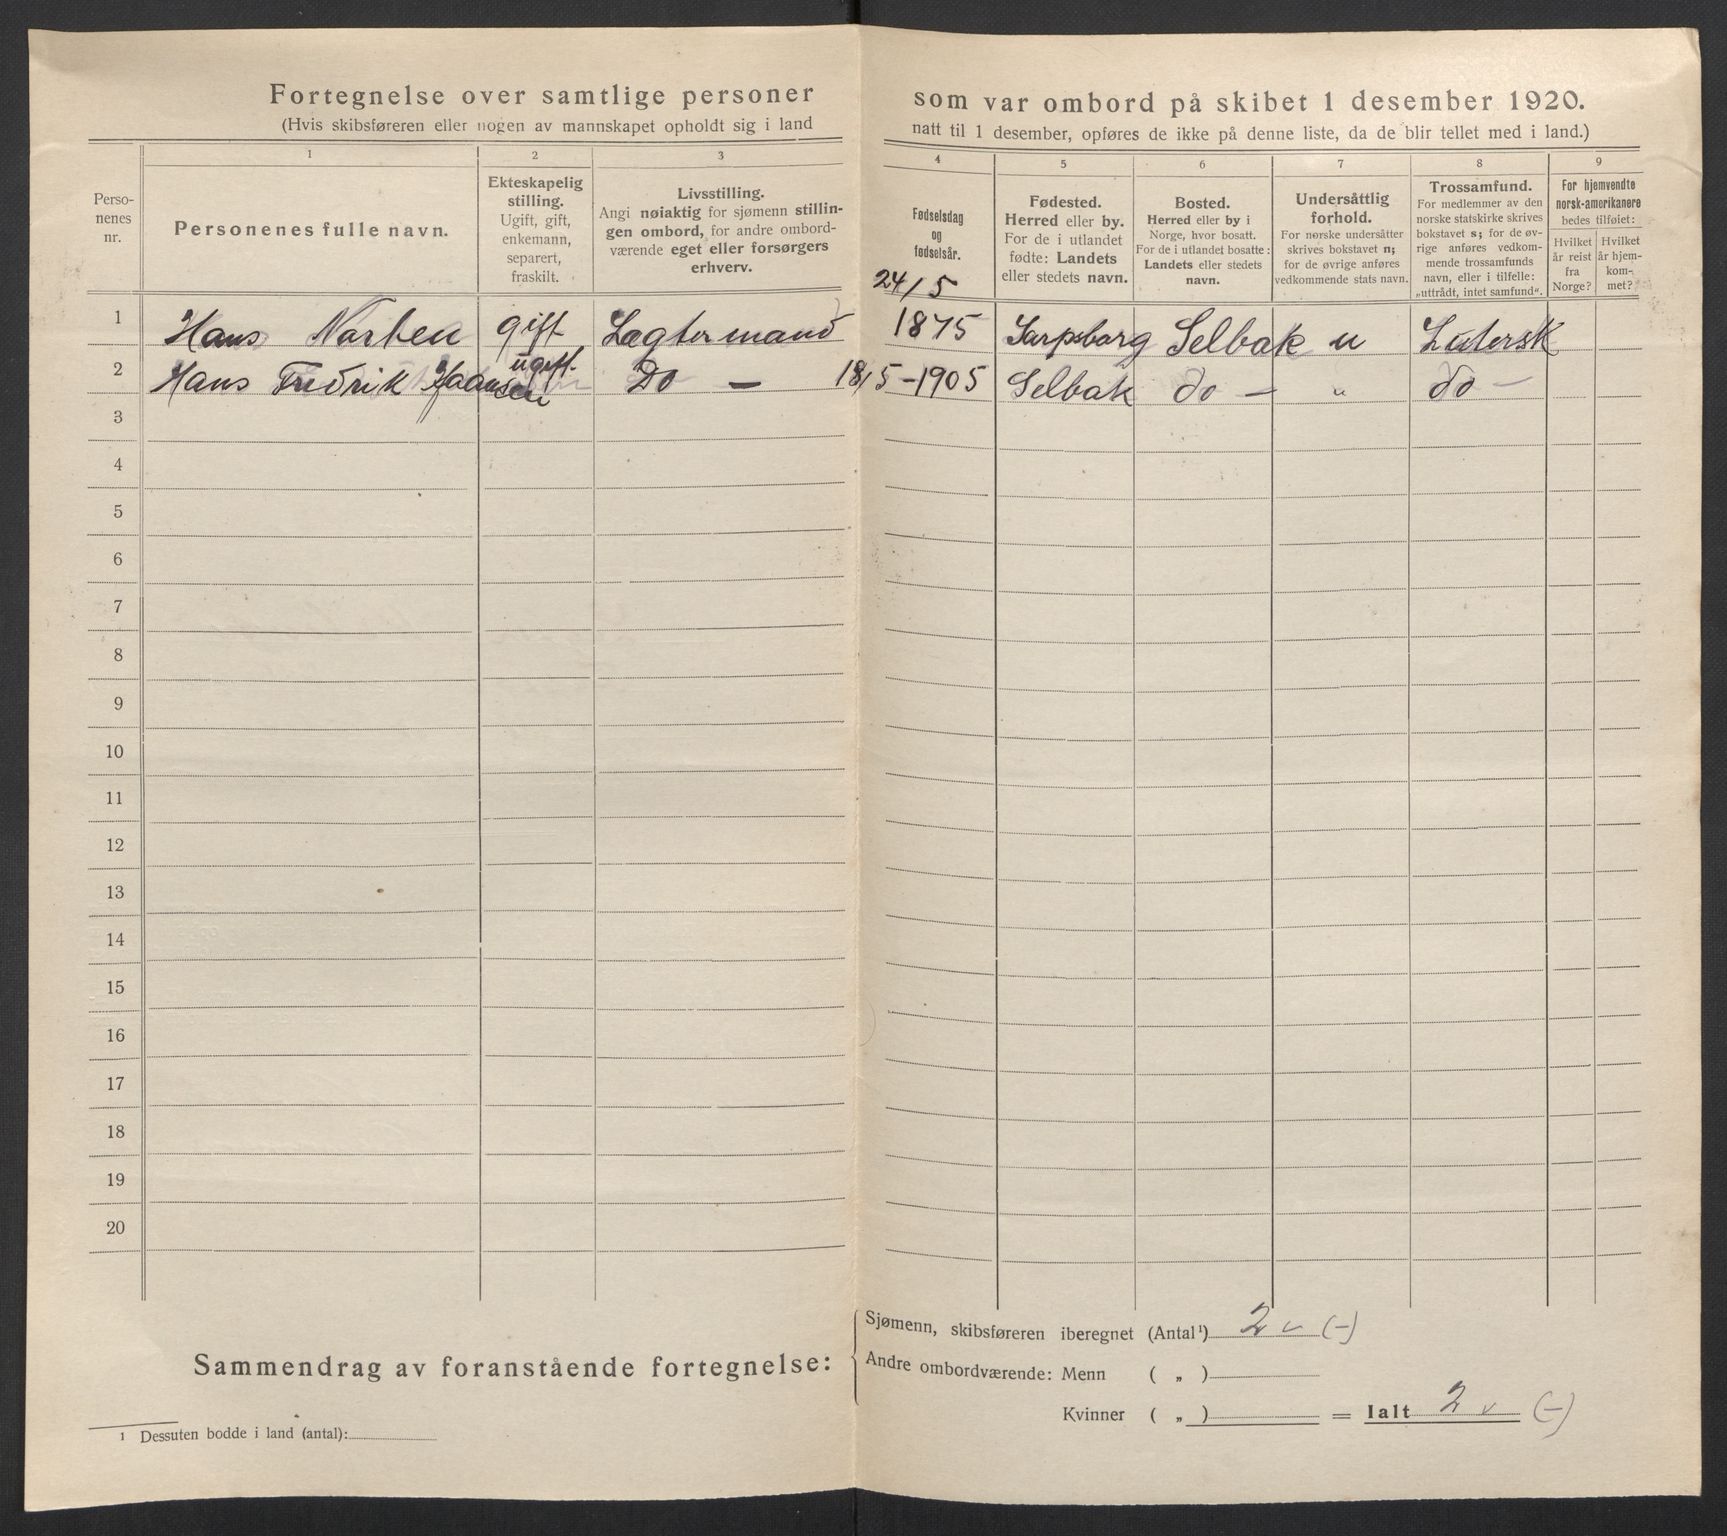 Fortegnelse over samtlige personer som var ombord på skibet 1 desember 1920.
(Hvis skibsføreren eller nogen av mannskapet opholdt sig i land natt til 1 desember, opføres de ikke på denne liste, da de blir tellet med i land.)
Perso-
nenes
nr.
1
Personenes fulle navn.
2
Ekteskapelig
stilling.
Ugift, gift,
enkemann,
separert,
fraskilt.
3
Livsstilling.
Angi nøiaktig for sjømenn stillin-
gen ombord, for andre ombord-
værende eget eller forsørgers
erhverv.
4
Fødselsdag
og
fødselsår.
5
Fødested.
Herred eller by.
For de i utlandet
fødte: Landets
eller stedets navn.
6
Bosted.
Herred eller by i
Norge, hvor bosatt.
For de i utlandet bosatte:
Landets eller stedets
navn.
7
Undersåttlig
forhold.
For norske undersåtter
skrives bokstavet n;
for de øvrige anføres
vedkommende stats navn.
8
Trossamfund.
For medlemmer av den
norske statskirke skrives
bokstavet s; for de øv-
rige anføres vedkom-
mende trossamfunds
navn, eller i tilfelle:
„uttrådt, intet samfund".
9
For hjemvendte
norsk-amerikanere
bedes tilføiet:
Hvilket
år reist
fra
Norge?
Hvilket
år hjem-
kom-
met?
24/5
1 Hans Norben gift Lagtermand 1875 Sarpsborg Selbak n Lutersk
2 Hans Fredrik Haansen ugift. Do — 18/5-1905 Selbak do — „ do —
3
4
5
6
7
8
9
10
11
12
13
14
15
16
17
18
19
20
Sammendrag av foranstående fortegnelse:
Sjømenn, skibsføreren iberegnet (Antal¹) 2 v (-)
Andre ombordværende: Menn ( „ )
Kvinner ( „ ) = Ialt 2 v (-)
1 Dessuten bodde i land (antal):